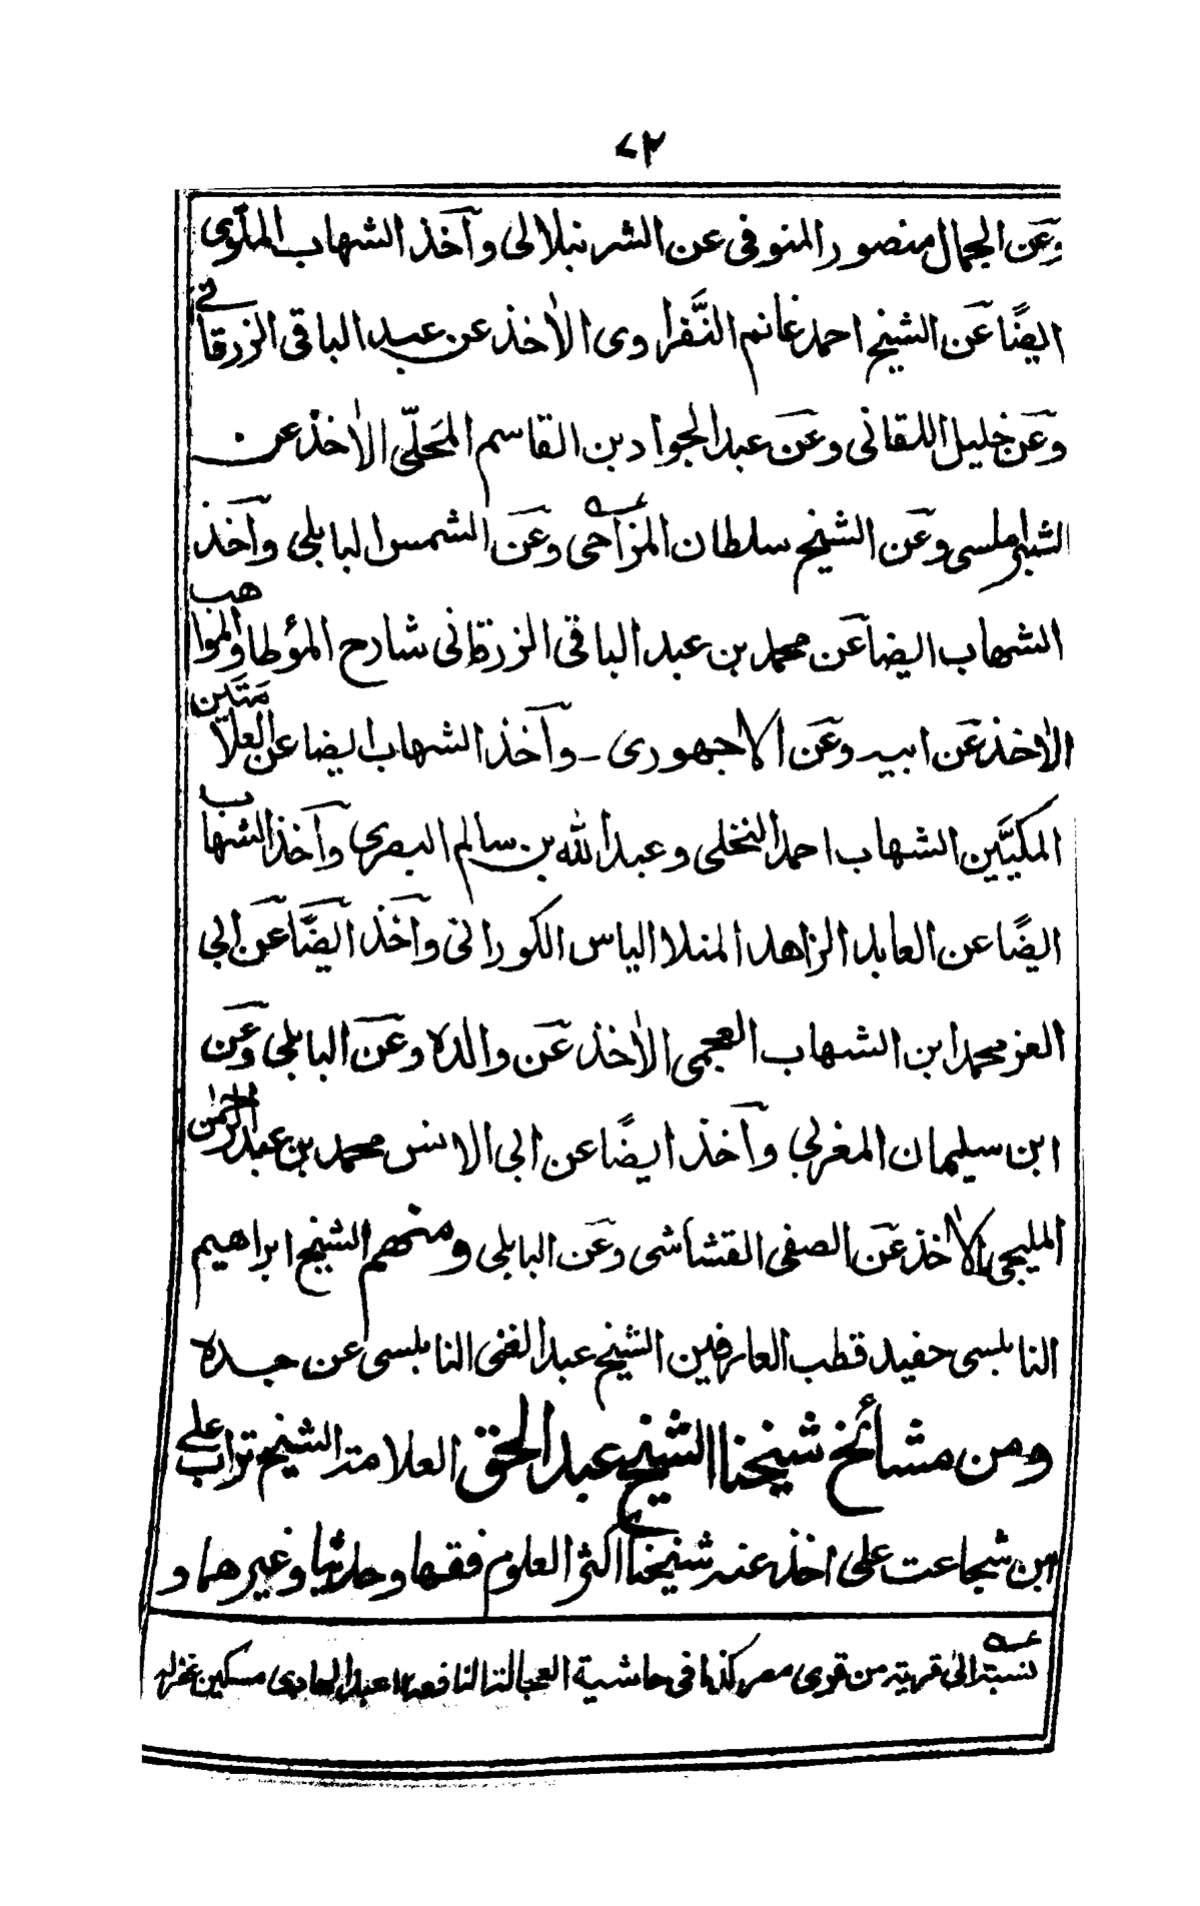 ٧٢
وعَن الجمال منصور المنوفى عن الشرنبلالى وآخذ الشهاب الملّوى
ايضًا عَن الشيخ احمد غانم النَّفراوى الاٰخذ عن عبد الباقى الزرقانى
وعَن خليل اللقانى وعَن عبد الجواد بن القاسم المَحلّى الاٰخذ عن
الشبراملسى وعَن الشيخ سلطان المزاحى عــه وعَن الشمس البابلى وآخذ
الشهاب ايضا عَن محمد بن عبد الباقى الزرقانى شارح المؤطا والمواهب
الاٰخذ عَن ابيه وعَن الاجهورى - وآخذ الشهاب ايضا عن العلّامتَين
المكيَّين الشهاب احمد النخلى وعبد الله بن سالم البصرى وآخذ الشهاب
ايضًا عن العابد الزاهد المنلا الياس الكورانى وآخذ ايضًا عَن ابى
العز محمد ابن الشهاب العجمى الاٰخذ عَن والده وعَن البابلى وعَن
ابن سليمان المغربى وآخذ ايضًا عن ابى الانس محمد بن عبد الرحمٰن
المليجى الاٰخذ عَن الصفى القشاشى وعَن البابلى ومنهم الشيخ ابراهيم
النابلسى حفيد قطب العارفين الشيخ عبد الغنى النابلسى عن جده
ومن مشائخ شيخنا الشيخ عبد الحق العلامة الشيخ تراب على
ابن شجاعت على اخذ عنه شيخنا اكثر العلوم فقها وحديثا وغيرهما و
عــه نسبة الى قرية من قوى مصر كذا فى حاشية العجالة النافعة ١٢ عبد الهادى مسكين غفرله